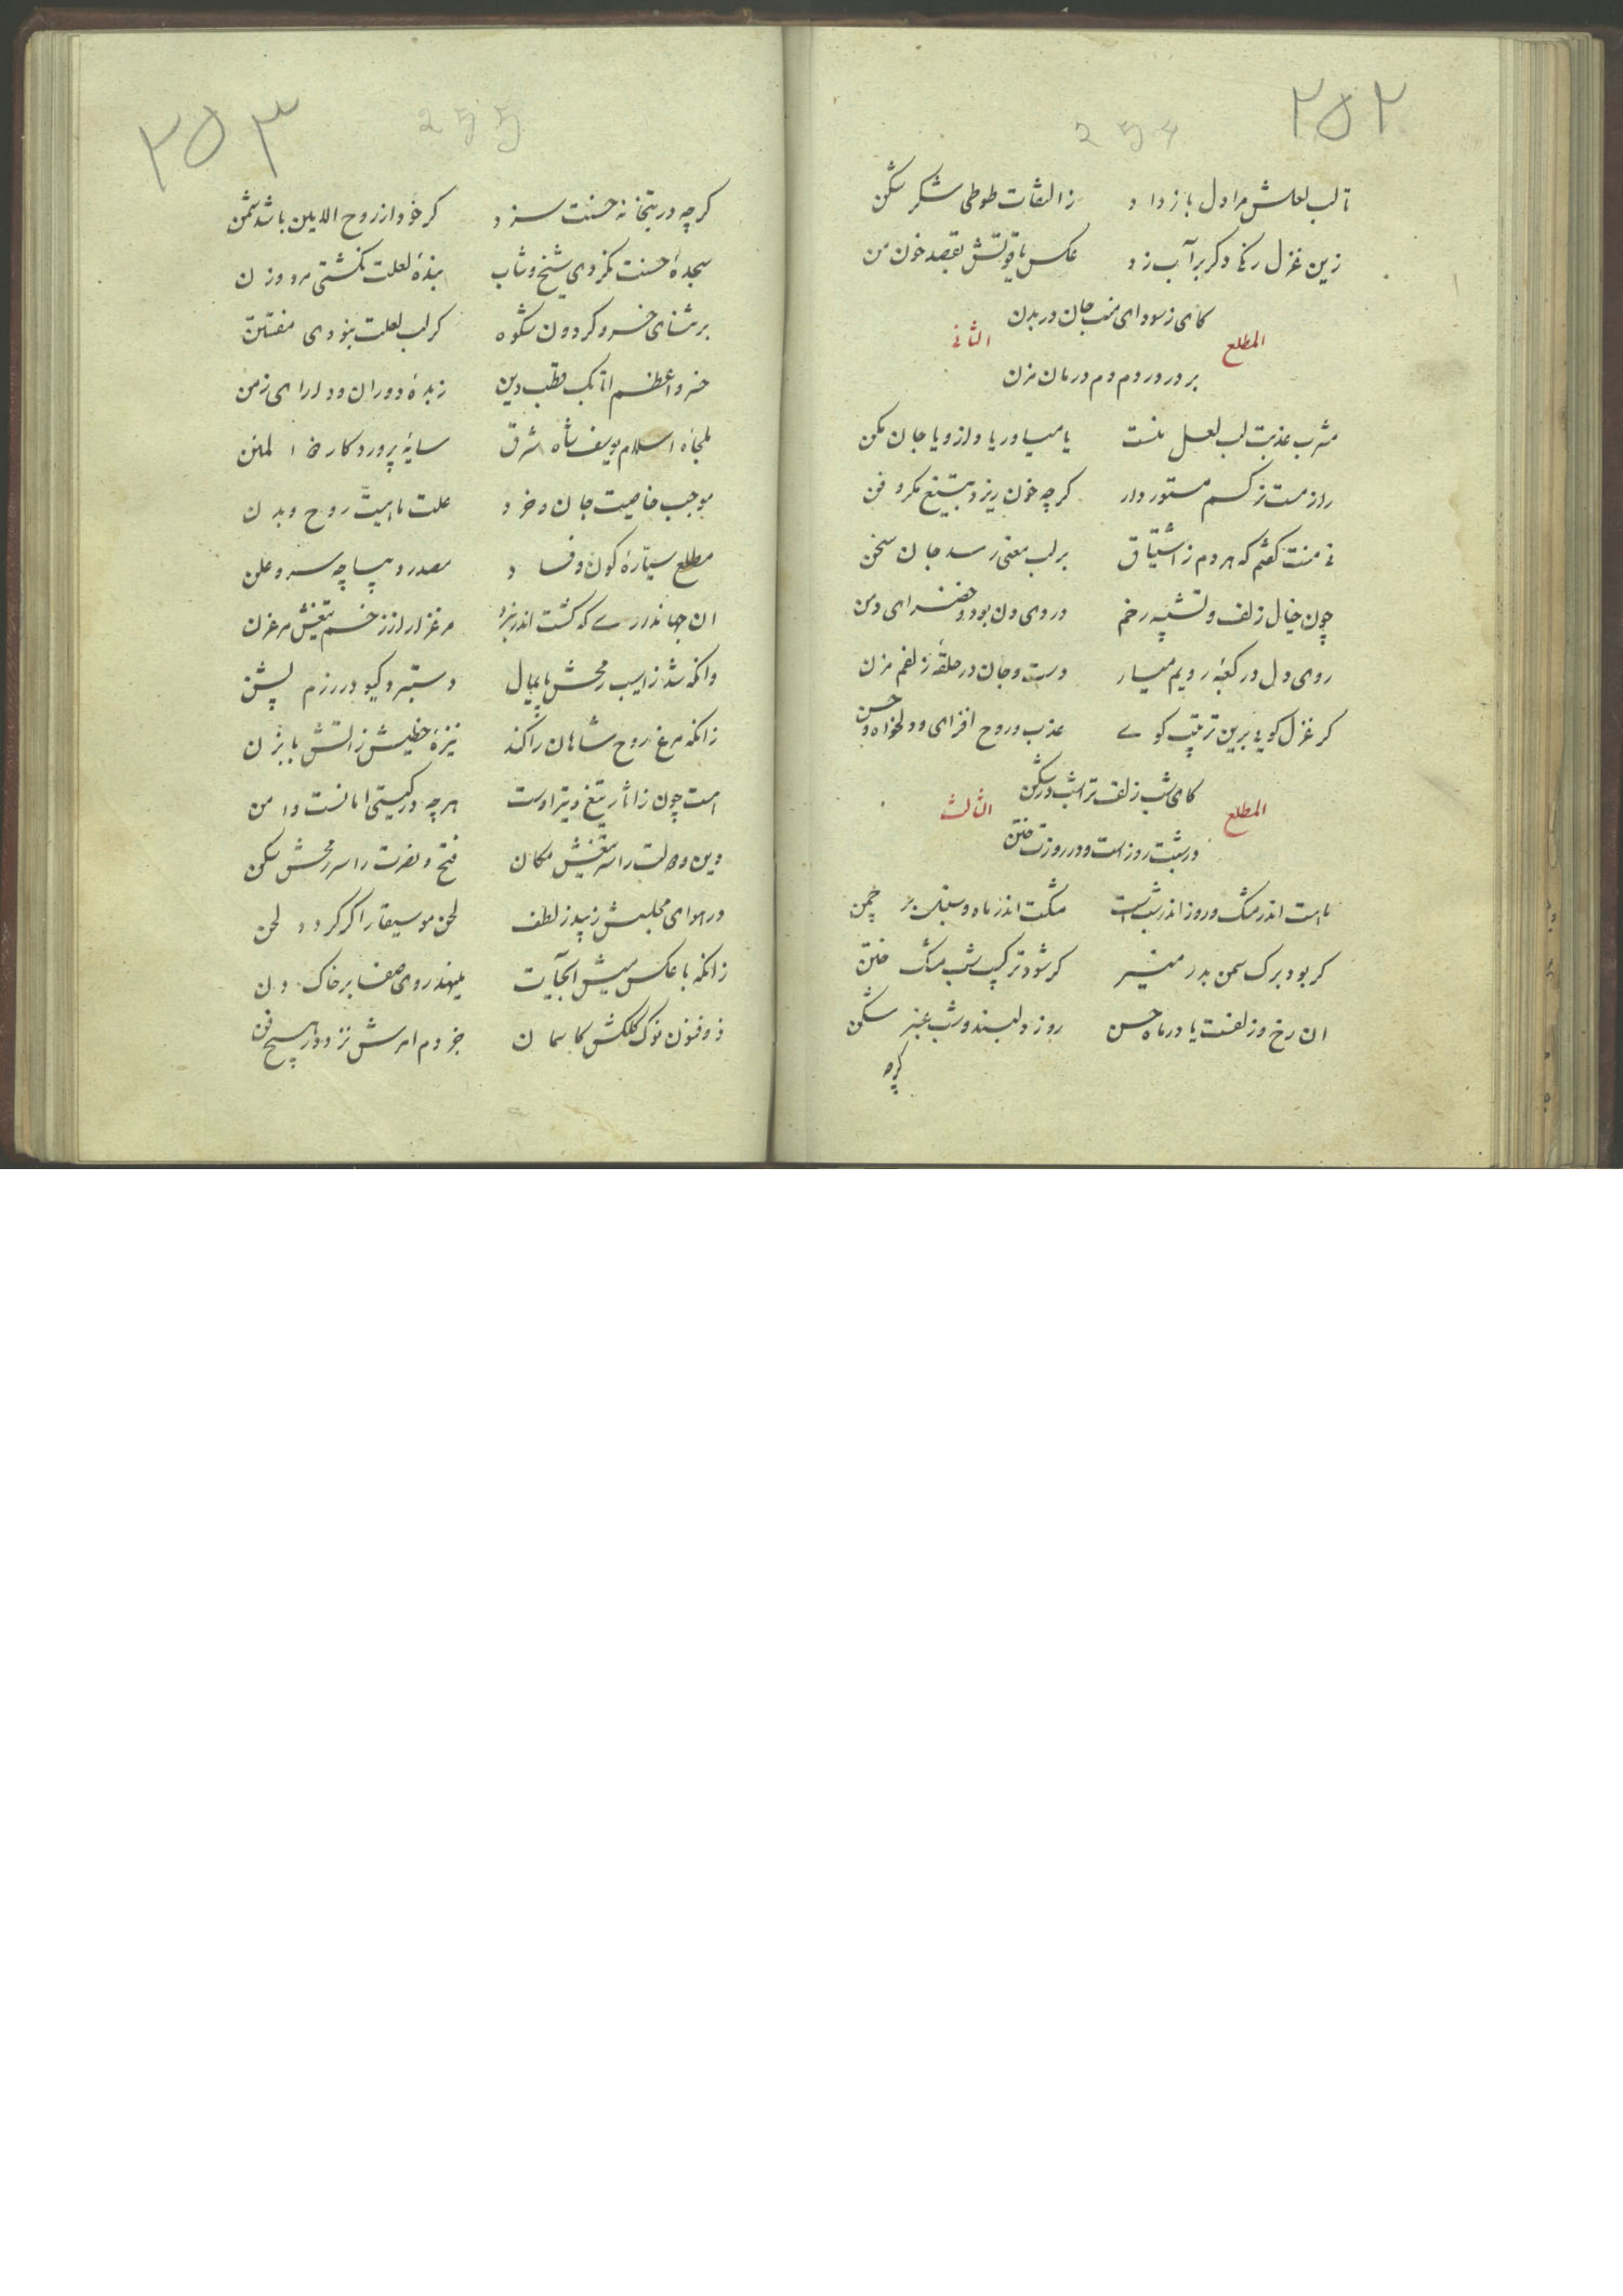 ۲۵۲
254
تا لب لعلش مرا دل باز داد زالتفات طوطی شکر شکن
زین غزل رنگی دکر بر آب زد عکس یاقوتش بقصد خون من
کای ز سودای غمت جان در بدن
المطلع الثانی
بر در و دردم دم درمان مزن
مشرب عذبت لب لعل منست یا میاور یاد ازو یا جان مکن
راز مست نرکسم مستور دار کرچه خون ریزد بتیغ مکر و فن
نی منت کفتم که هر دم ز اشتیاق بر لب معنی رسد جان سخن
چون خیال زلف و تشبیه رخم در وی دون بود و خضرای دمن
روی دل در کعبه رویم میار دست و جان در حلقه زلفم مزن
کر غزل کویی برین ترتیب کوی عذب و روح افزای و دلخواه و حسن
کای شب زلف ترا شب در شکن
المطلع الثالث
در شبت روزست و در روزت فتن
ماهت اندر مشک و روز اندر شبست مشکت اندر ماه و سنبل بر چمن
کر بود برک سمن بدر منیر کر شود ترکیب شب مشک ختن
ان رخ و زلفت یا در ماه حسن روز دلبند و شب عنبر شکن
کرچه
۲۵۳
255
کرچه در بتخانه حسنت سزد کر خود از روح الامین باشد شمن
سجده حسنت نکردی شیخ و شاب بنده لعلت نکشتی مرد و زن
بر ثنای خسرو کردون شکوه کر لب لعلت نبودی مفتتن
خسرو اعظم اتابک قطب دین زبده دوران و دارای زمن
ملجاء اسلام یوسف شاه شرق سایه پروردکار ذو المنن
موجب خاصیت جان و خرد علت ماهیت روح و بدن
مطلع سیاره کون و فساد مصدر دیباچه سر و علن
ان جهانداری که کشت اندر نبرد مرغزار از خسم تیغش مرغزن
وانکه شد ز اسیب رمحش پایمال دستبرد کیو در رزم پشن
زانکه مرغ روح شاهان را کند نیزه خطیش ز اتش بابزن
امت چون ز اثار تیغ و تیر اوست هرچه در کیتی امانست و امن
دین و دولت را سر تیغش مکان فتح و نصرت را سر رمحش سکن
در هوای مجلسش زیبد ز لطف لحن موسیقار اکر کردد لحن
زانکه با عکس سیش اب حیات مینهد روی صفا بر خاک دن
ذو فنون نوک کلکش کاسمان جز دم امرش نزد در هیچ فن